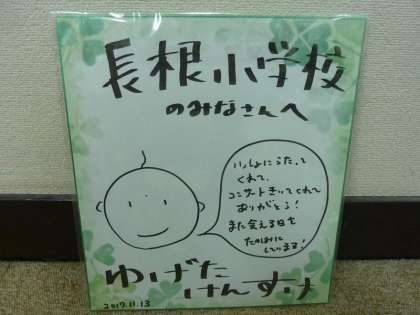 長根小学校
のみなさんへ
いっしょにうたって
くれて、
コンサートきいてくれて
ありがとう!
また会える日を
たのしみに
しているよ!
ゆげた
けんすけ
2017.11.13